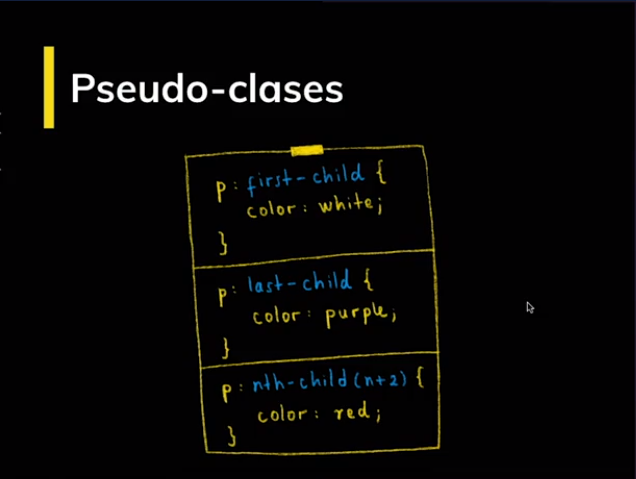 Pseudo-clases
p: first-child {
color: white;
}
p: last-child {
color: purple;
}
p: nth-child(n+2) {
color: red;
}